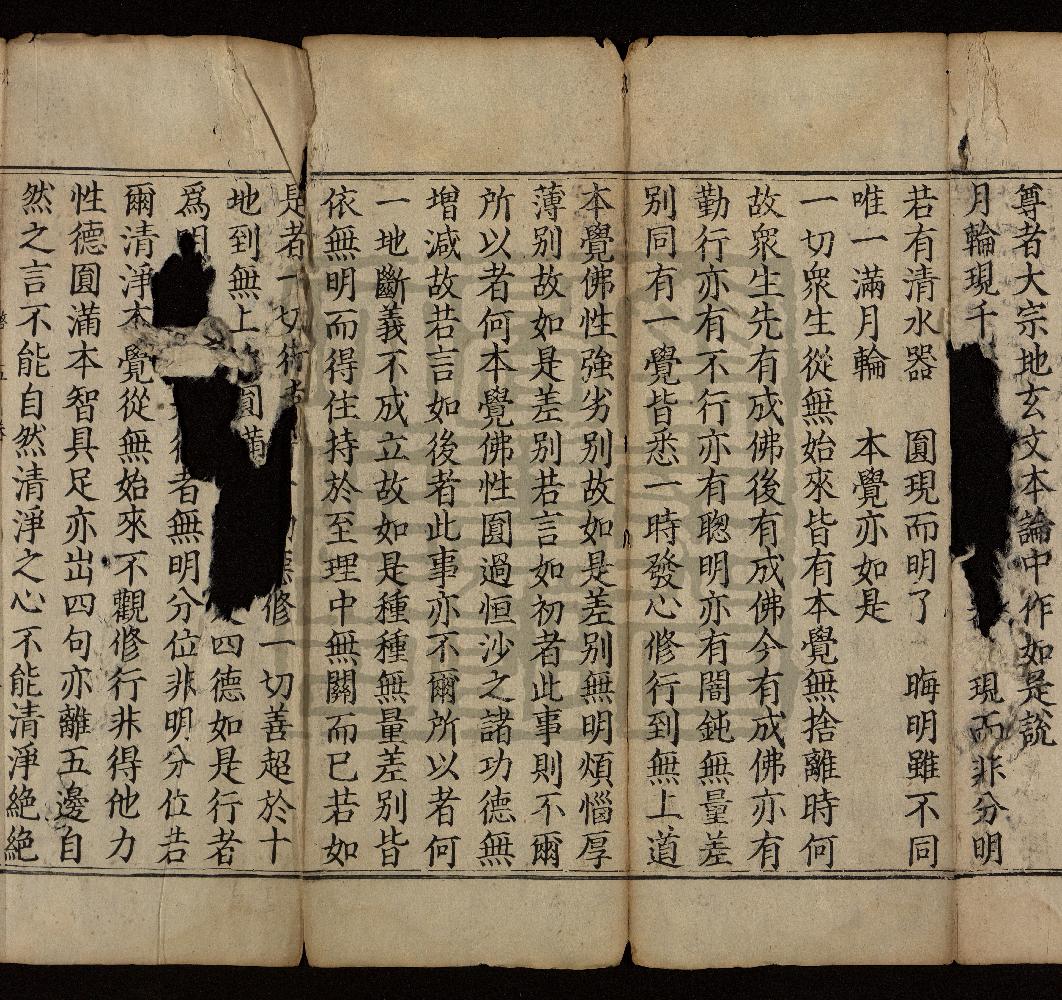 尊者大宗地玄文本論中作如是說
月輪現千 現而非分明
若有清水器 圎現而明了 晦明雖不同
唯一滿月輪 本覺亦如是
一切衆生從無始來皆有本覺無捨離時何
故衆生先有成佛後有成佛今有成佛亦有
勤行亦有不行亦有聰明亦有闇鈍無量差
別同有一覺皆悉一時發心修行到無上道
本覺佛性強劣別故如是差別無明煩惱厚
薄別故如是差別若言如初者此事則不爾
所以者何本覺佛性圎過恒沙之諸功德無
增減故若言如後者此事亦不爾所以者何
一地斷義不成立故如是種種無量差別皆
依無明而得住持於至理中無關而已若如
是者一切行者 修一切善超於十
地到無上 圎滿 四德如是行者
爲明 者無明分位非明分位若
爾清淨本覺從無始來不觀修行非得他力
性德圎滿本智具足亦出四句亦離五邊自
然之言不能自然清淨之心不能清淨絶絶